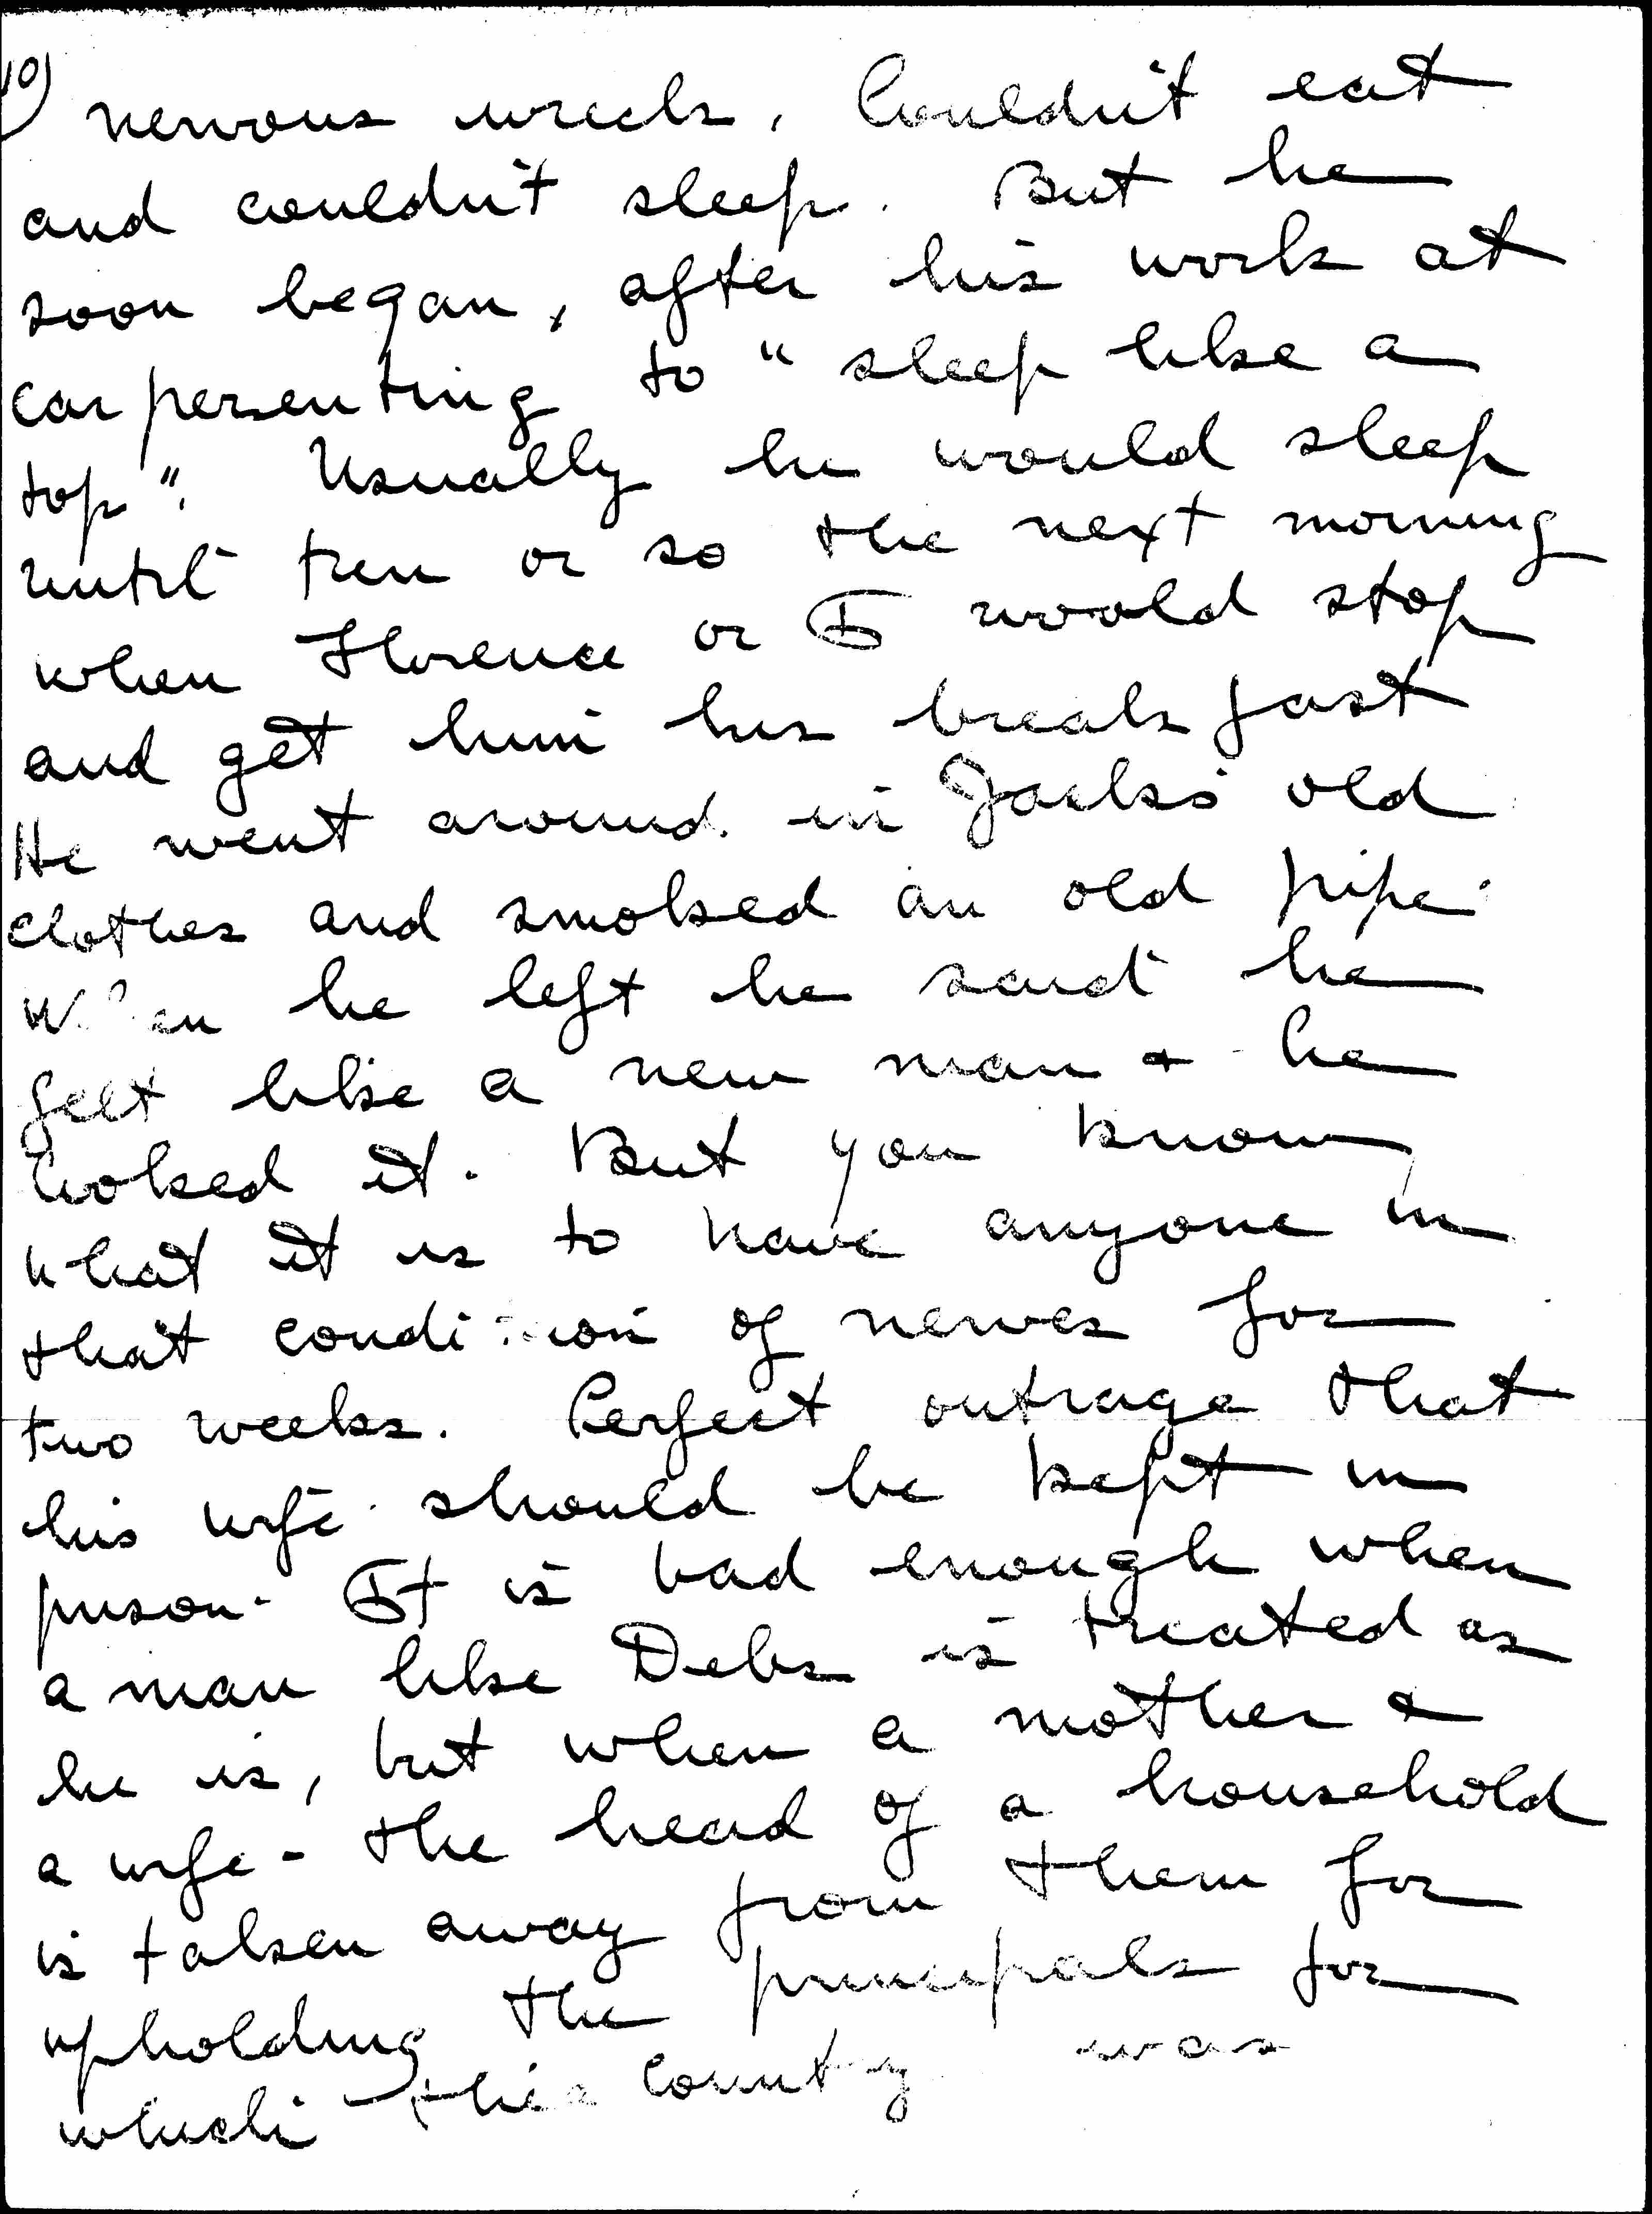 10)
nervous wreck. Couldn't eat
and couldn't sleep. But he
soon began, after his work at
carpersenting to "sleep like a
top". Usually he would sleep
until ten or so the next morning
when Florence or I would stop
and get him his breakfast
He went around in Jack's old
clothes and smoked an old pipe.
When he left he said he
felt like a new man & he
looked it. But you know,
what it is to have anyone in
that condition of nerves for
two weeks. Perfect outrage that
his wife should be kept in
prison. It is bad enough when
a man like Debs is treated as
he is, but when a mother &
a wife - the head of a household
is taken away from them for
upholding the principals for
which this country was